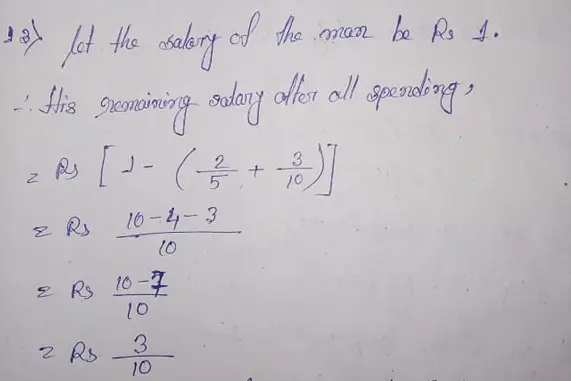 13) Let the salary of the man be Rs 1.
∴ His remaining salary after all spending,
= Rs [1 - (2/5 + 3/10)]
= Rs 10-4-3/10
= Rs 10-7/10
= Rs 3/10